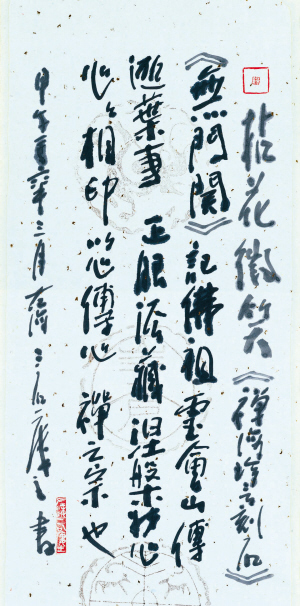 拈花微笑《禪海珍言刻石》
《無門關》記佛祖靈會山傳
迦葉事 正眼法藏 涅槃妙心
心心相印 以心傳心 禪之宗也
甲午年三月 之書